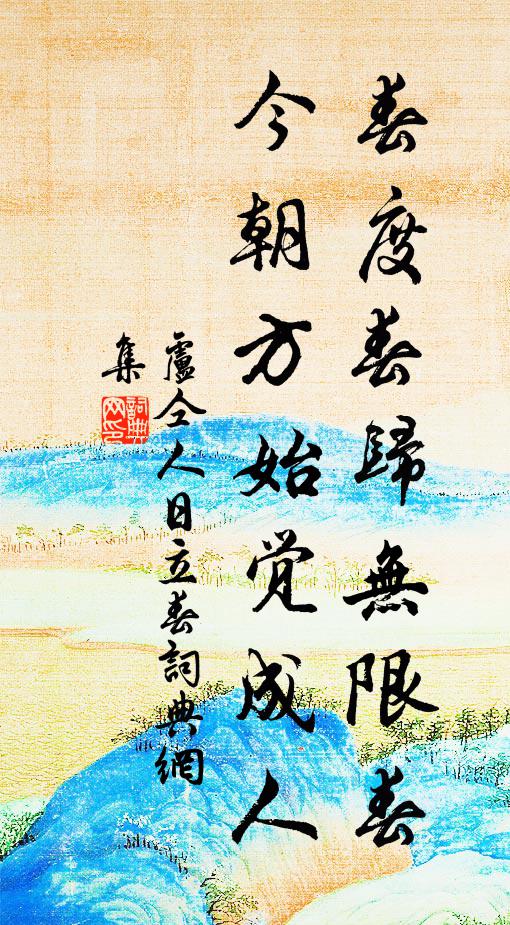 春度春歸無限春
今朝方始觉成人
盧仝人日立春詞典網
集
詞典
网印